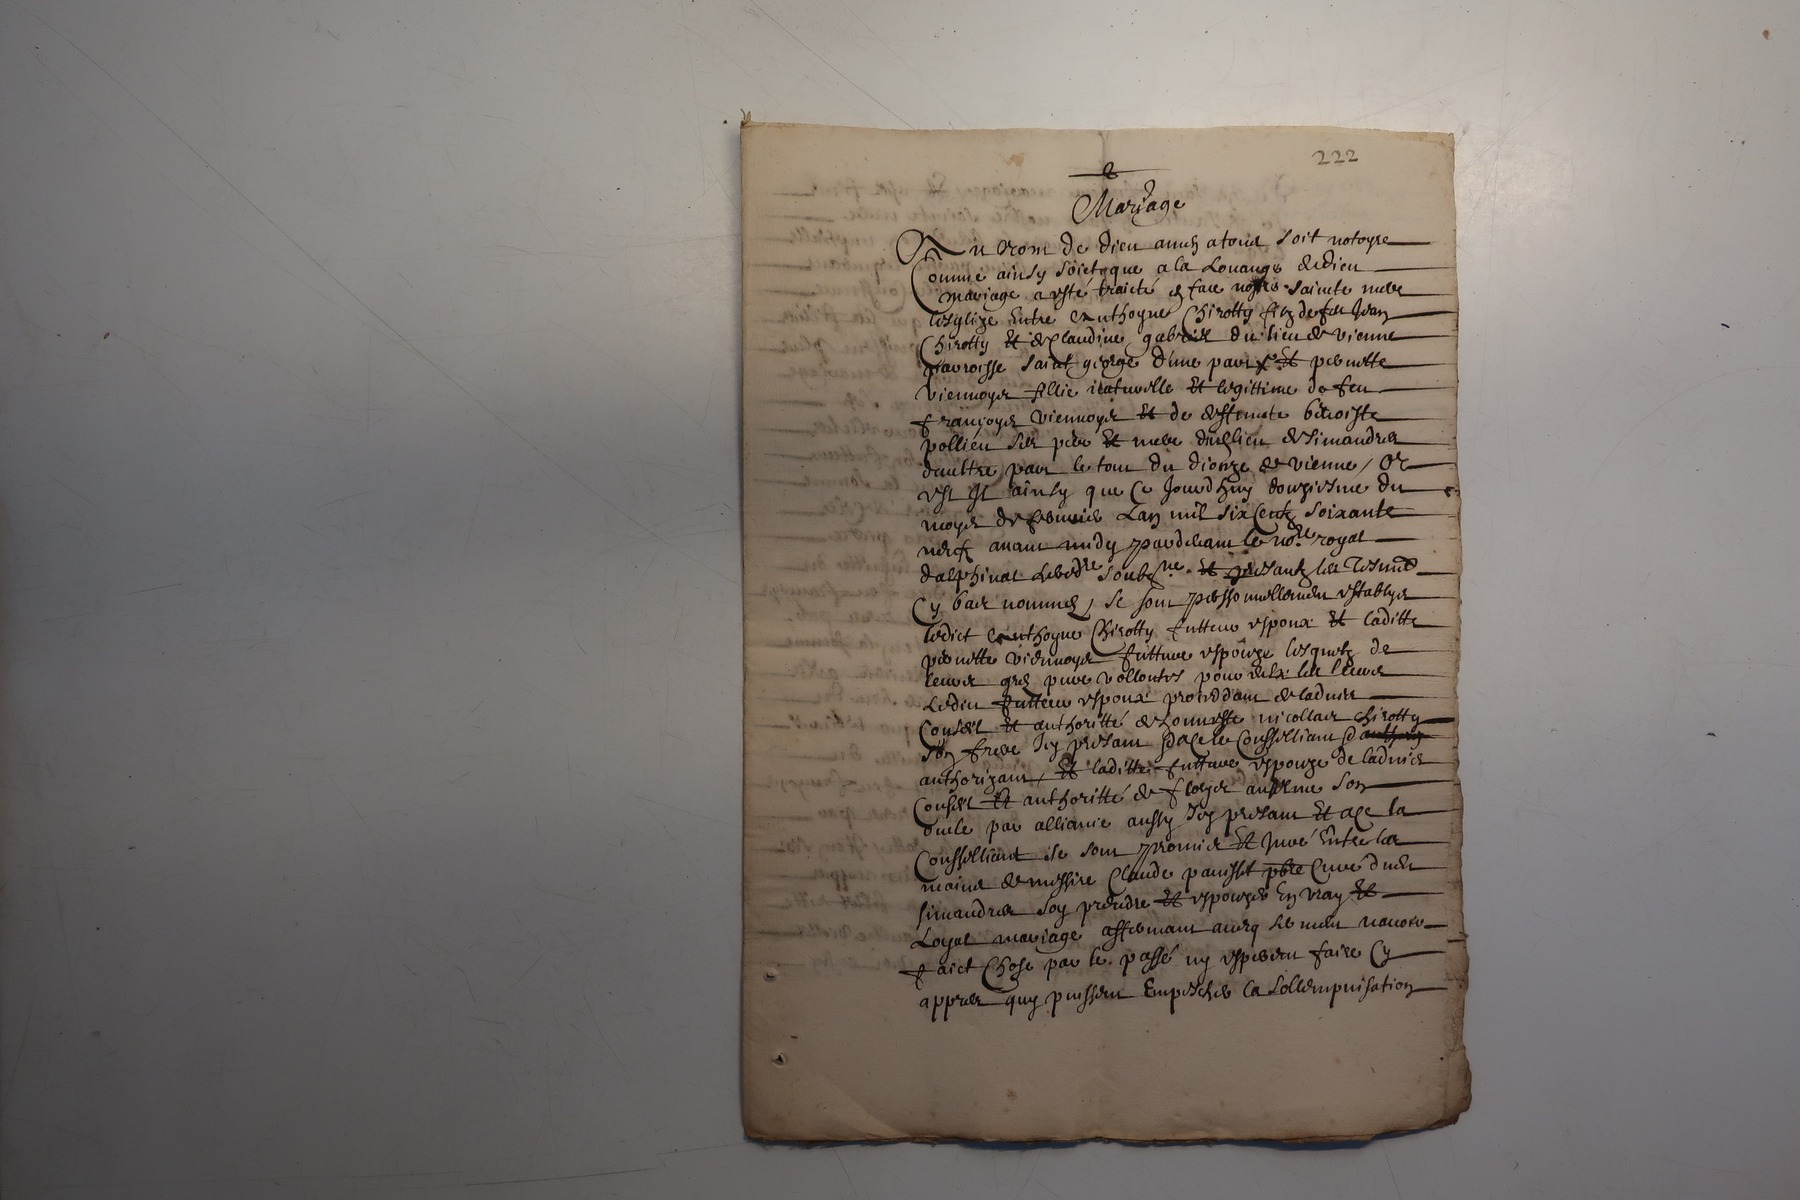 222
Mariage
Au nom de dieu amen a tous soit notoyre
Comme ainsy soict que a la Louange de dieu
mariage a esté traicté en face nostre sainte mere
lesglize Entre Anthoyne Chirotty filz de feu Jean
Chirotty Et de Claudine gabriel du lieu de vienne
parroisse saint george d'une part Et pernette
viennoys fillie naturelle Et legittime de feu
françoys viennoys Et de deffuncte benoiste
pollien ses pere Et mere dudict lieu de simandres
daultre part le tout du dioceze de vienne / Or
est Il ainsy que Ce Jourdhuy douziesme du
moys de febvrier Lan mil six Centz soixante
neuf avant midy pardevant le nore royal
dalphinal hereditre soubzne Et presantz les Tesmd
Cy bas nommes, se sont personnellement establys
ledict Anthoyne Chirotty futteur espoux Et laditte
pernette viennoys futture espouze lesquelz de
leurs gres pures vollontes pour eulx les leurs
Ledict futteur espoux proceddant de ladvis
Conseil Et authoritté de honneste nicollas Chirotty
son frere Icy presant Et a Ce le Conseilliant Et
authorizant, Et laditte futture espouze de ladvis
Conseil Et authoritté de fleurys anselme son
oncle par alliance aussy Icy presant Et a Ce la
Conseilliant se sont promis Et Juré Entre les
mains de messire Claude pansset pbre Curé dudit
simandres soy prendre Et espouzer En vray Et
Loyal mariage affermant avecq serment navoir
faict Chose par le passé ny esperent faire Cy
appres quy puissent Empescher la sollempnisation